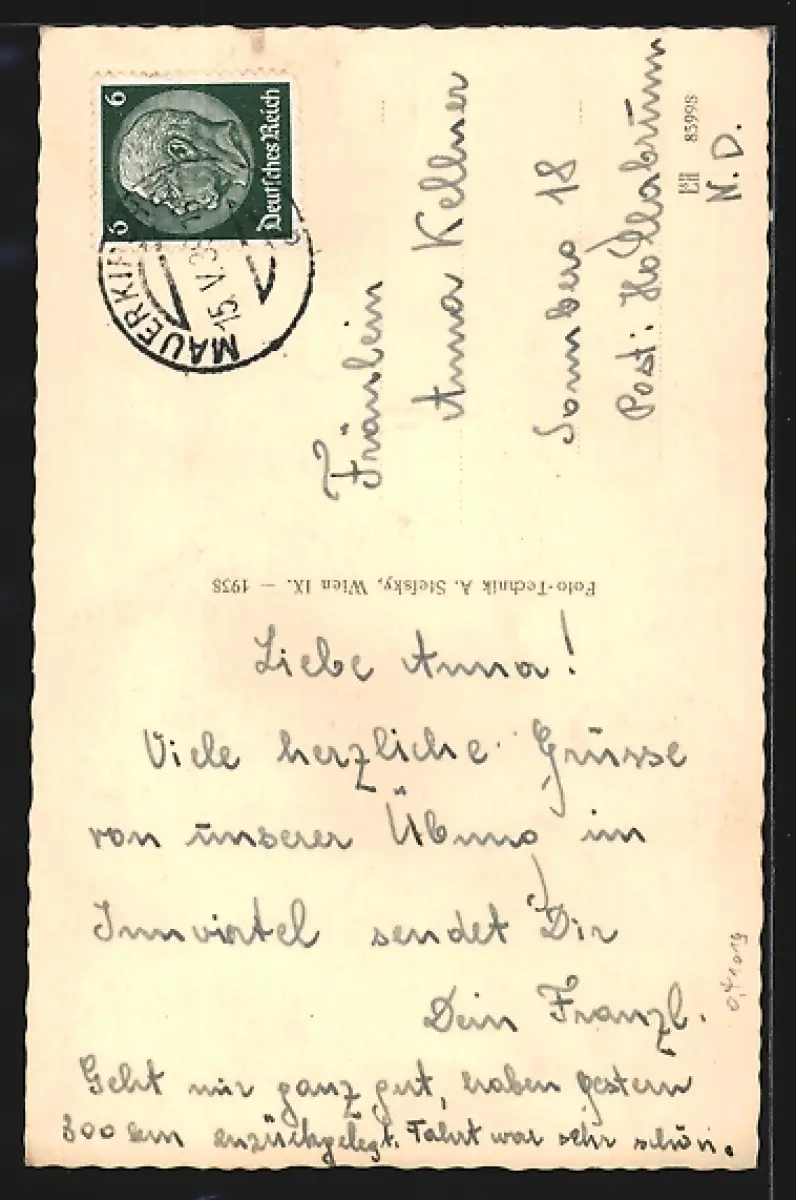 6 6
Deutsches Reich
MAUERKIR
15.V.3
Fräulein
Anna Kellner
Sonnberg 18
Post: Hollabrunn
N.D.
85998
Foto-Technik A. Stefsky, Wien IX. — 1938
Liebe Anna!
Viele herzliche Grüsse
von unserer Übung im
Innviertel sendet Dir
Dein Franzl.
Geht mir ganz gut, haben gestern
300 km zurückgelegt. Fahrt war sehr schön.